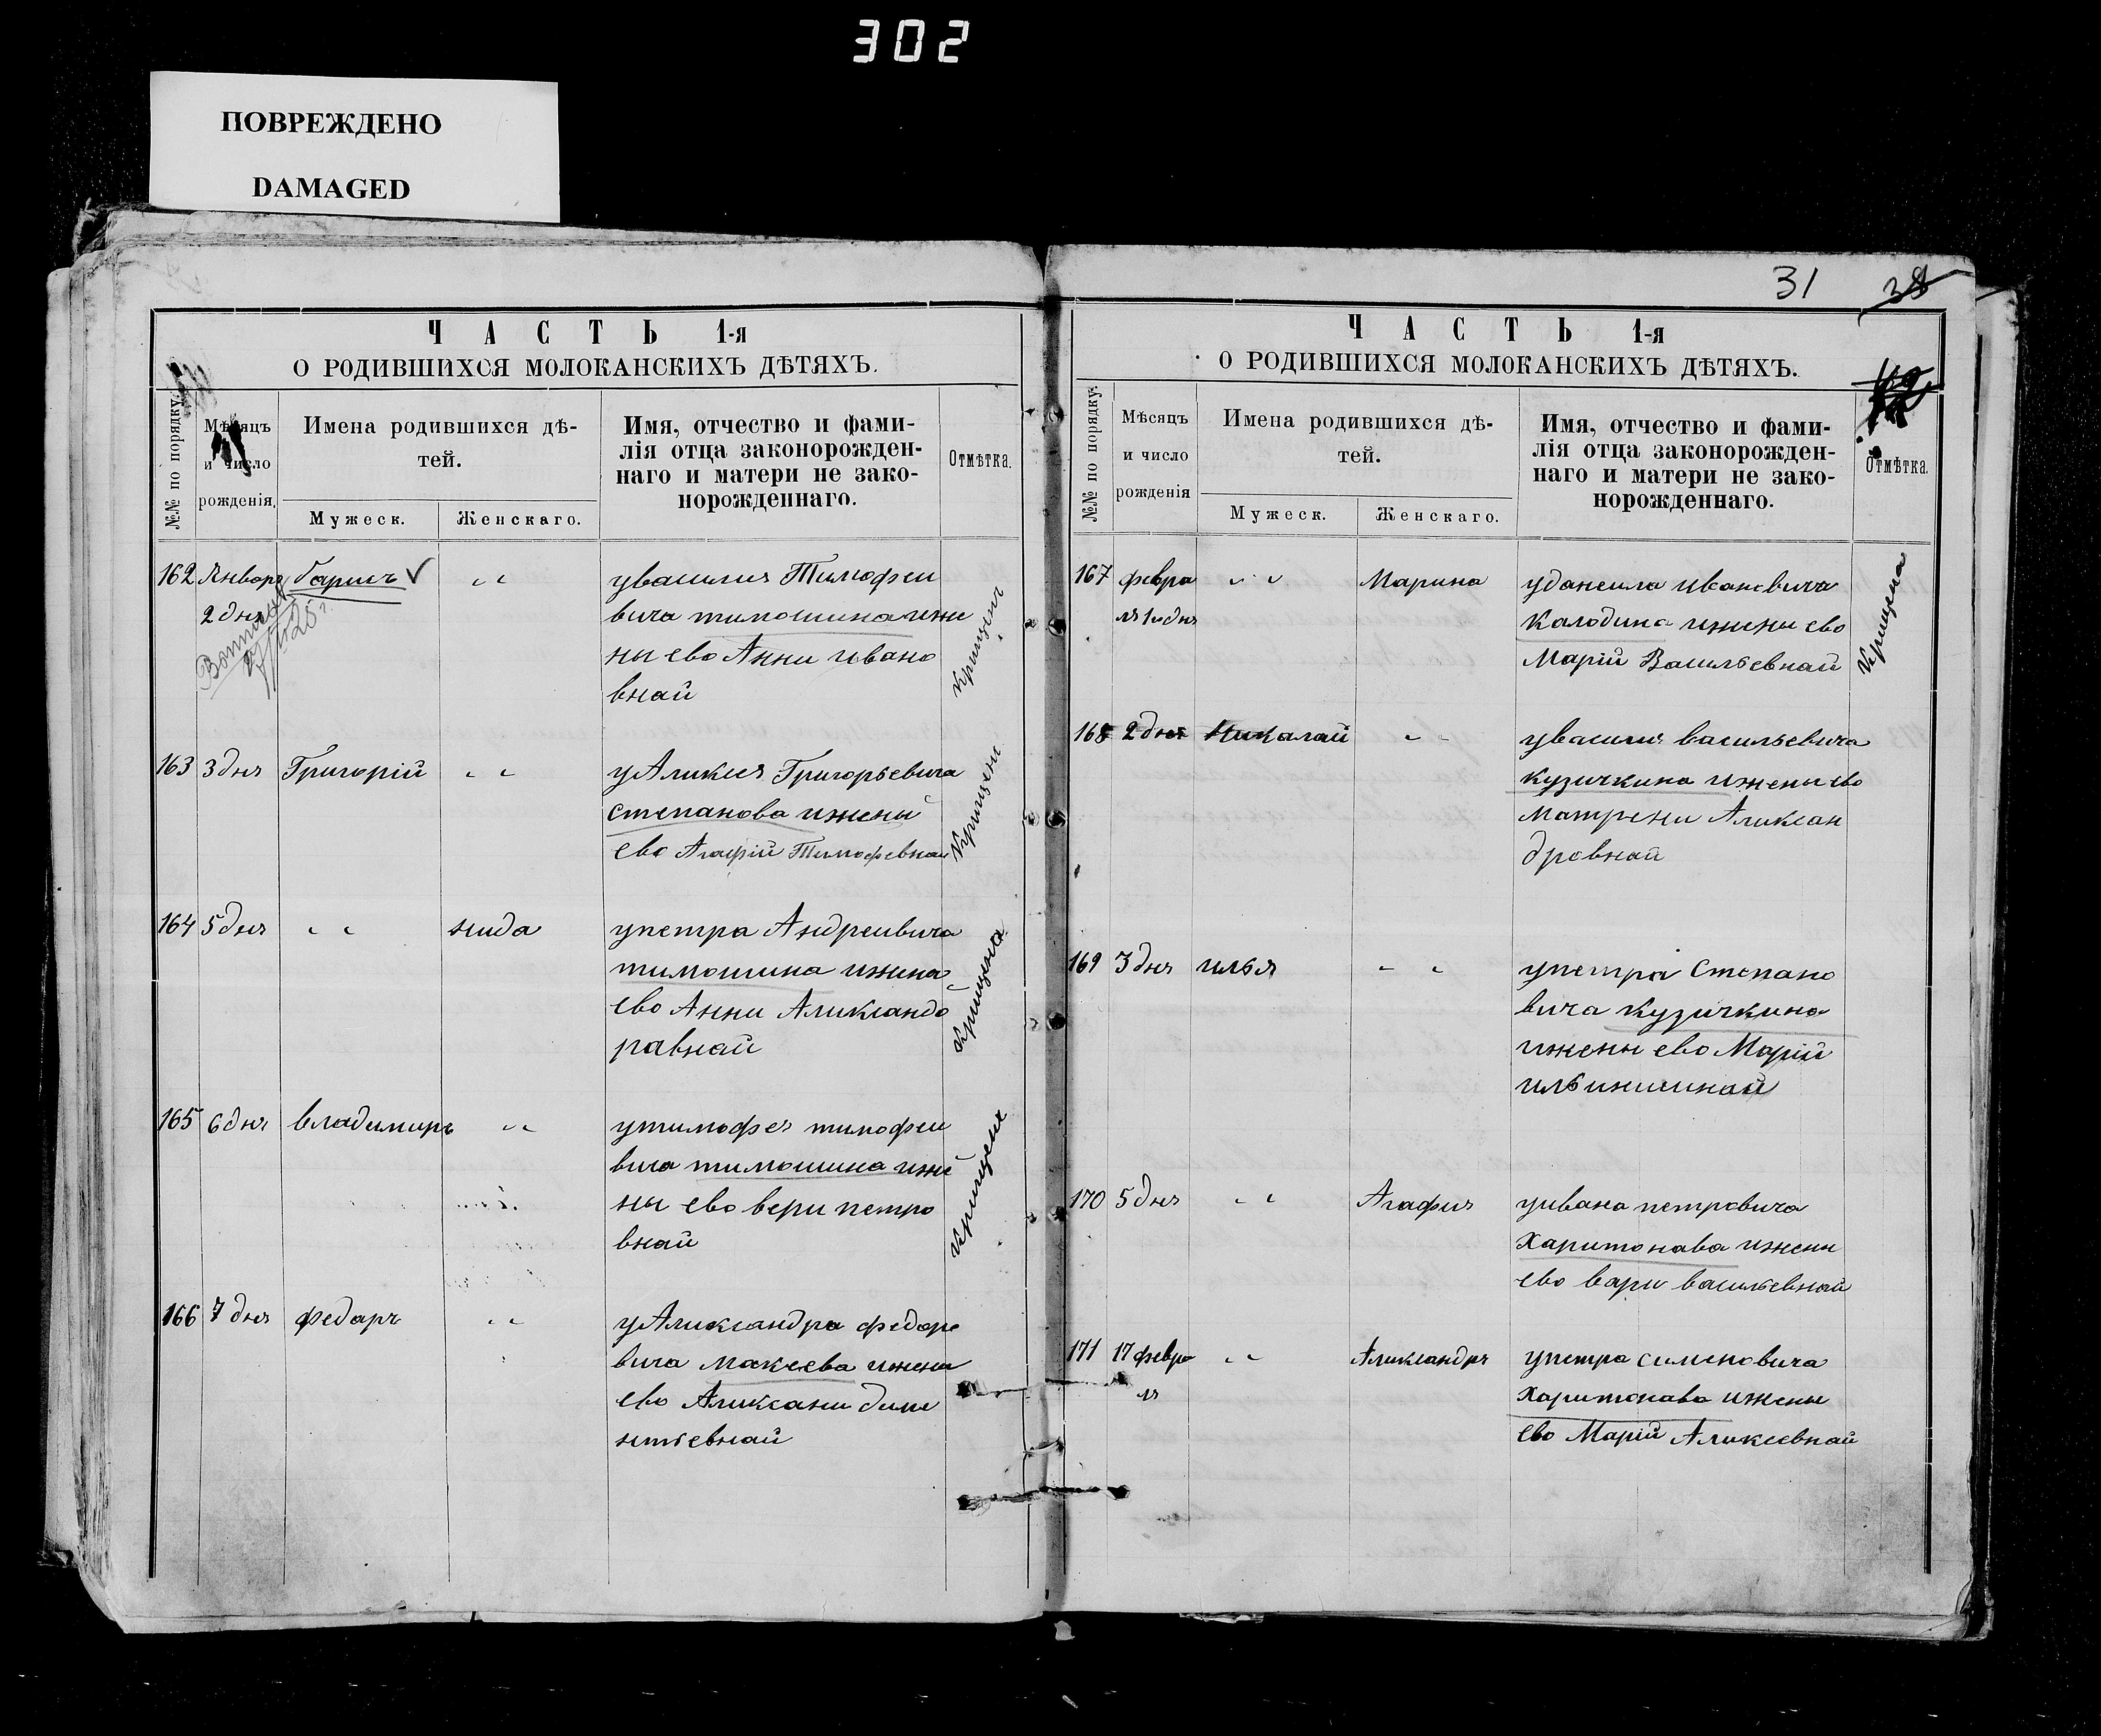 302
ПОВРЕЖДЕНО
DAMAGED
ЧАСТЬ 1-я
О РОДИВШИХСЯ МОЛОКАНСКИХЪ ДѢТЯХЪ.
№№ по порядку.
Мѣсяцъ
и число
рожденія.
Имена родившихся дѣ-
тей.
Мужеск.
Женскаго.
Имя, отчество и фами-
лія отца законорожден-
наго и матери не зако-
норожденнаго.
Отмѣтка.
162 Январ Барисъ " увасилия Тимофеи
2 дня вича тимошина ижи
ны ево Анни ивано
внай
крищенъ
163 3 дня Григорій " уАликсия Григорьевича
степанова ижены
ево Агафій Тимофевнай
Крищены
164 5 дня " нида упетра Андреивича
тимошина ижина
ево Анни Аликсандо
равнай
Крищена
165 6 дня владимиръ " утимофея тимофеи
вича тимошина ижи
ны ево вери петро
внай
Крищенъ
166 7 дня федаръ " уАликсандра федоре
вича макеева ижены
ево Аликсани дили
нтьевнай
31 38
ЧАСТЬ 1-я
О РОДИВШИХСЯ МОЛОКАНСКИХЪ ДѢТЯХЪ.
№№ по порядку.
Мѣсяцъ
и число
рожденія
Имена родившихся дѣ-
тей.
Мужеск.
Женскаго.
Имя, отчество и фами-
лія отца законорожден-
наго и матери не зако-
норожденнаго.
Отмѣтка.
167 февра " Марина уданеила ивановича
ля 1го дня Калодина ижены ево
Марій Васильевнай
Крищена
168 2 дня Никалай " увасилия васильевича
кузичкина ижены ево
матрени Аликсан
дровнай
169 3 дня илья " упетра Степано
вича кузичкина
ижены ево Марій
ильинишнай
170 5 дня " Агафия уивана петровича
Харитонава ижены
ево вари васильевнай
171 17 февра " Аликсандра упетра сименовича
ля Харитонава ижены
ево Марій Аликсевнай